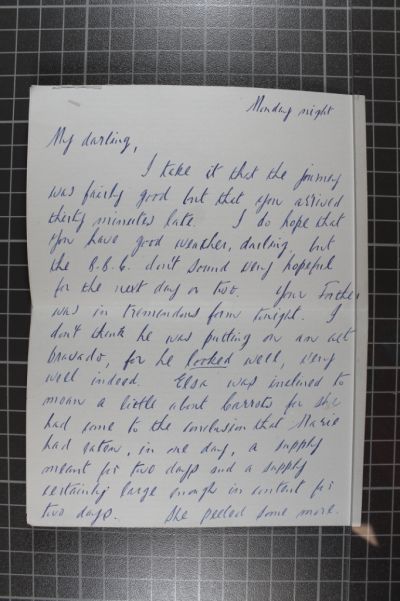 Monday night
My darling,
I take it that the journey
was fairly good but that you arrived
thirty minutes late. I do hope that
you have good weather, darling, but
the B.B.C. don't sound very hopeful
for the next day or two. Your Father
was in tremendous form tonight. I
don't think he was putting on an act
bravado, for he looked well, very
well indeed. Elsa was inclined to
moan a little about Carrots for she
had come to the conclusion that Marie
had eaten, in one day, a supply
meant for two days and a supply
certainly large enough in content for
two days. She peeled some more.